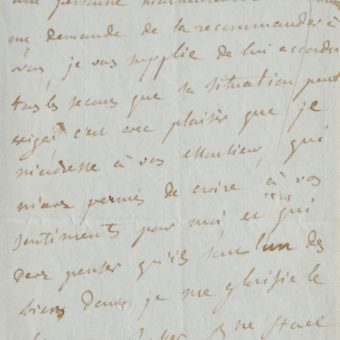 une personne
me demande de la recommander à
vous, je vous supplie de lui accorder
tous les secours que sa situation peut
exiger c'est avec plaisir que je
m'adresse à vos attentions, qui
m'avez permis de croire à vos
sentiments pour moi et qui
devez penser qu'ils sont l'un des
biens dont je me glorifie le